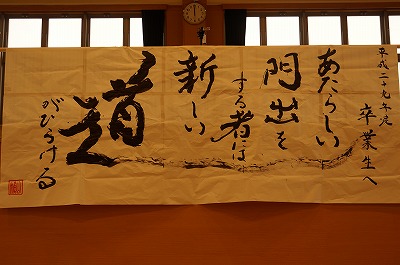 平成二十九年度
卒業生へ
あたらしい
門出を
する者には
新しい
道
がひらける